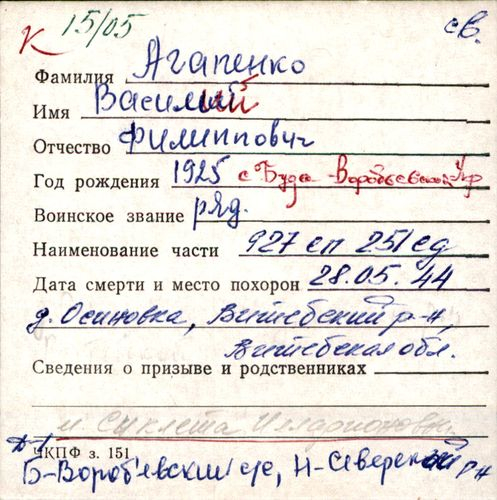 К 15/05
св.
Фамилия Агапенко
Имя Василий
Отчество Филиппович
Год рождения 1925 с Буда-Воробьевская
Воинское звание ряд.
Наименование части 927 сп 251 сд
Дата смерти и место похорон 28.05.44
д. Осиновка, Витебский р-н,
Витебская обл.
Сведения о призыве и родственниках
м. Суклета
ЧКПФ з. 151
Б-Вороб'евский с/с, Н-Северский рн